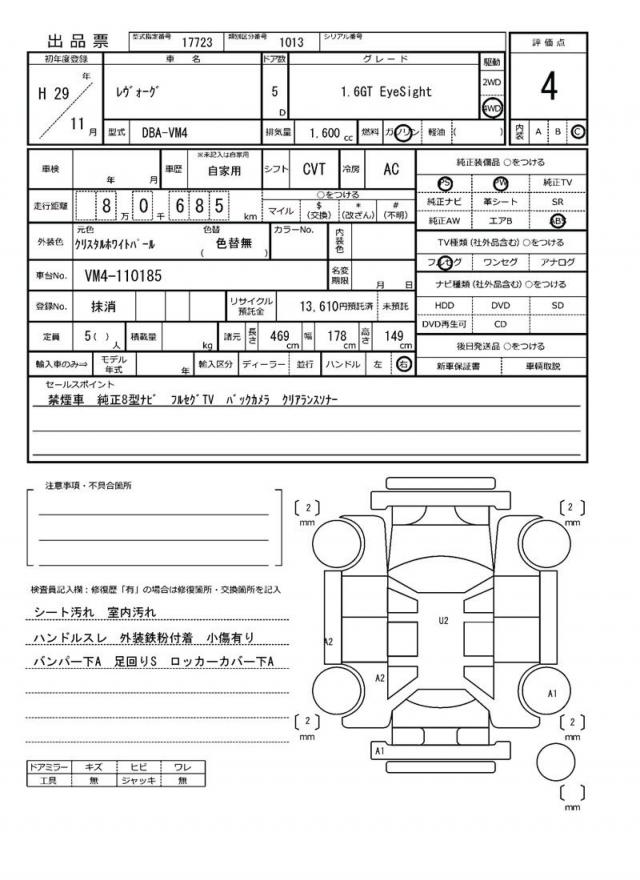 出品票 型式指定番号 17723 類別区分番号 1013 シリアル番号
初年度登録 車名 ドア数 グレード 駆動 評価点
H 29 年 11 月 レヴォーグ 5 D 1.6GT EyeSight 2WD 4WD 4
型式 DBA-VM4 排気量 1.600 cc 燃料 ガソリン 軽油 ( ) 内装 A B C
車検 年 月 車歴 ※未記入は自家用 自家用 シフト CVT 冷房 AC
走行距離 8 万 0 千 6 8 5 km ○をつける マイル $ (交換) * (改ざん) # (不明)
外装色 元色 クリスタルホワイトパール 色替 ( 色替無 ) カラーNo. 内装色
車台No. VM4-110185 名変期限 月 日
登録No. 抹消 リサイクル預託金 13,610円預託済 未預託
定員 5( ) 人 積載量 kg 諸元 長さ 469 cm 幅 178 cm 高さ 149 cm
輸入車のみ⇒ モデル年式 年 輸入区分 ディーラー 並行 ハンドル 左 右
純正装備品 ○をつける
PS PW 純正TV
純正ナビ 革シート SR
純正AW エアB ABS
TV種類(社外品含む) ○をつける
フルセグ ワンセグ アナログ
ナビ種類(社外品含む) ○をつける
HDD DVD SD
DVD再生可 CD
後日発送品 ○をつける
新車保証書 車輌取説
セールスポイント
禁煙車 純正8型ナビ フルセグTV バックカメラ クリアランスソナー
注意事項・不具合箇所
検査員記入欄:修復歴「有」の場合は修復箇所・交換箇所を記入
シート汚れ 室内汚れ
ハンドルスレ 外装鉄粉付着 小傷有り
バンパー下A 足回りS ロッカーカバー下A
ドアミラー キズ ヒビ ワレ
工具 無 ジャッキ 無
[ 2 ] mm
[ 2 ] mm
U2
A2
A2
A1
[ 2 ] mm
[ 2 ] mm
A1
[ ] mm